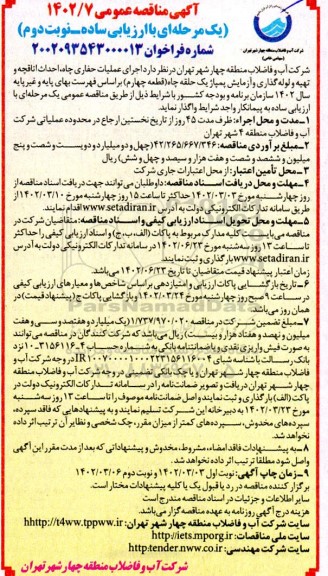 آگهی مناقصه عمومی ۱۴۰۲/۷
(یک مرحله‌ای با ارزیابی ساده-نوبت دوم)
شماره فراخوان ۲۰۰۲۰۹۳۵۴۳۰۰۰۰۱۳
شرکت آب و فاضلاب منطقه چهار شهر تهران
(سهامی خاص)
شرکت آب و فاضلاب منطقه چهار شهر تهران در نظر دارد اجرای عملیات حفاری چاه، احداث اتاقچه و
تهیه و لوله‌گذاری و آزمایش پمپاژ یک حلقه چاه (قطعه چهارم) براساس فهرست بهای پایه و غیر پایه
سال ۱۴۰۲ سازمان برنامه و بودجه کشور با شرایط ذیل از طریق مناقصه عمومی یک مرحله‌ای با
ارزیابی ساده به پیمانکار واجد شرایط واگذار نماید.
۱-مدت و محل اجراء: ظرف مدت ۴۵ روز از تاریخ نخستین ارجاع در محدوده عملیاتی شرکت
آب و فاضلاب منطقه ۴ شهر تهران
۲-مبلغ برآوردی مناقصه: ۴۲/۲۶۵/۶۶۷/۳۴۶ (چهل و دو میلیارد و دویست و شصت و پنج
میلیون و ششصد و شصت و هفت هزار و سیصد و چهل و شش) ریال
۳-محل تأمین اعتبار: از محل اعتبارات جاری شرکت
۴-مهلت و محل دریافت اسناد مناقصه: داوطلبان می‌توانند جهت دریافت اسناد مناقصه از
روز چهارشنبه مورخ ۱۴۰۲/۰۳/۰۳ حداکثر تا ساعت ۱۵ روز چهارشنبه مورخ ۱۴۰۲/۰۳/۱۰ از
طریق سامانه تدارکات الکترونیکی دولت به آدرس www.setadiran.ir اقدام نمایند.
۵-مهلت و محل تحویل اسناد ارزیابی کیفی و اسناد مناقصه: متقاضیان شرکت در
مناقصه می‌بایست کلیه مدارک مربوط به پاکات (الف، ب، ج) و اسناد ارزیابی کیفی را حداکثر
تا ساعت ۱۳ روز سه‌شنبه مورخ ۱۴۰۲/۰۳/۲۳ در سامانه تدارکات الکترونیکی دولت به آدرس
www.setadiran.ir بارگذاری و ثبت نمایند.
زمان اعتبار پیشنهاد قیمت متقاضیان تا تاریخ ۱۴۰۲/۰۶/۲۳ می‌باشد.
۶-تاریخ بازگشایی پاکات ارزیابی و امتیازدهی براساس شاخص‌ها و معیارهای ارزیابی کیفی
در ساعت ۹ صبح روز چهارشنبه مورخ ۱۴۰۲/۰۳/۲۴ و بازگشایی پاکات ج (پیشنهاد قیمت) در
همان روز می‌باشد.
۷-مبلغ تضمین شرکت در مناقصه ۱/۷۳۷/۹۷۰/۰۲۰ (یک میلیارد و هفتصد و سی و هفت
میلیون و نهصد و هفتاد هزار و بیست) ریال می‌باشد که شرکت‌کنندگان در مناقصه می‌توانند
به صورت فیش واریزی نقدی و یا ضمانتنامه بانکی به شماره حساب
بانک رسالت با شناسه شبای در وجه شرکت آب و
فاضلاب منطقه چهار شهر تهران و یا چک بانکی تضمینی در وجه شرکت آب و فاضلاب منطقه
چهار شهر تهران دریافت و تصویر ضمانت‌نامه را در سامانه تدارکات الکترونیک دولت در
پاکت (الف) بارگذاری و ثبت نمایند و اصل ضمانت‌نامه موصوف را تا ساعت ۱۳ روز سه‌شنبه
مورخ ۱۴۰۲/۰۳/۲۳ به دبیرخانه این شرکت تسلیم نمایند و به پیشنهادهایی که فاقد سپرده،
سپرده‌های مخدوش، سپرده‌های کمتر از میزان مقرر، چک شخصی و نظایر آن ترتیب اثر داده
نخواهد شد.
۸-به پیشنهادات فاقد امضاء، مشروط، مخدوش و پیشنهاداتی که بعد از مدت مقرر این آگهی
واصل شود مطلقاً ترتیب اثر داده نخواهد شد.
۹-زمان چاپ آگهی: نوبت اول ۱۴۰۲/۰۳/۰۳ و نوبت دوم ۱۴۰۲/۰۳/۰۶
برگزار کننده مناقصه در رد یا قبول یک یا کلیه پیشنهادات مختار است.
سایر اطلاعات و جزئیات در اسناد مناقصه مندرج است
هزینه درج آگهی روزنامه به عهده مناقصه گزار می‌باشد.
سایت شرکت آب و فاضلاب منطقه چهار شهر تهران: hhttp://t4ww.tppww.ir
سایت ملی مناقصات: http://iets.mporg.ir
سایت شرکت مهندسی: http:tender.nww.co.ir
شرکت آب و فاضلاب منطقه چهار شهر تهران